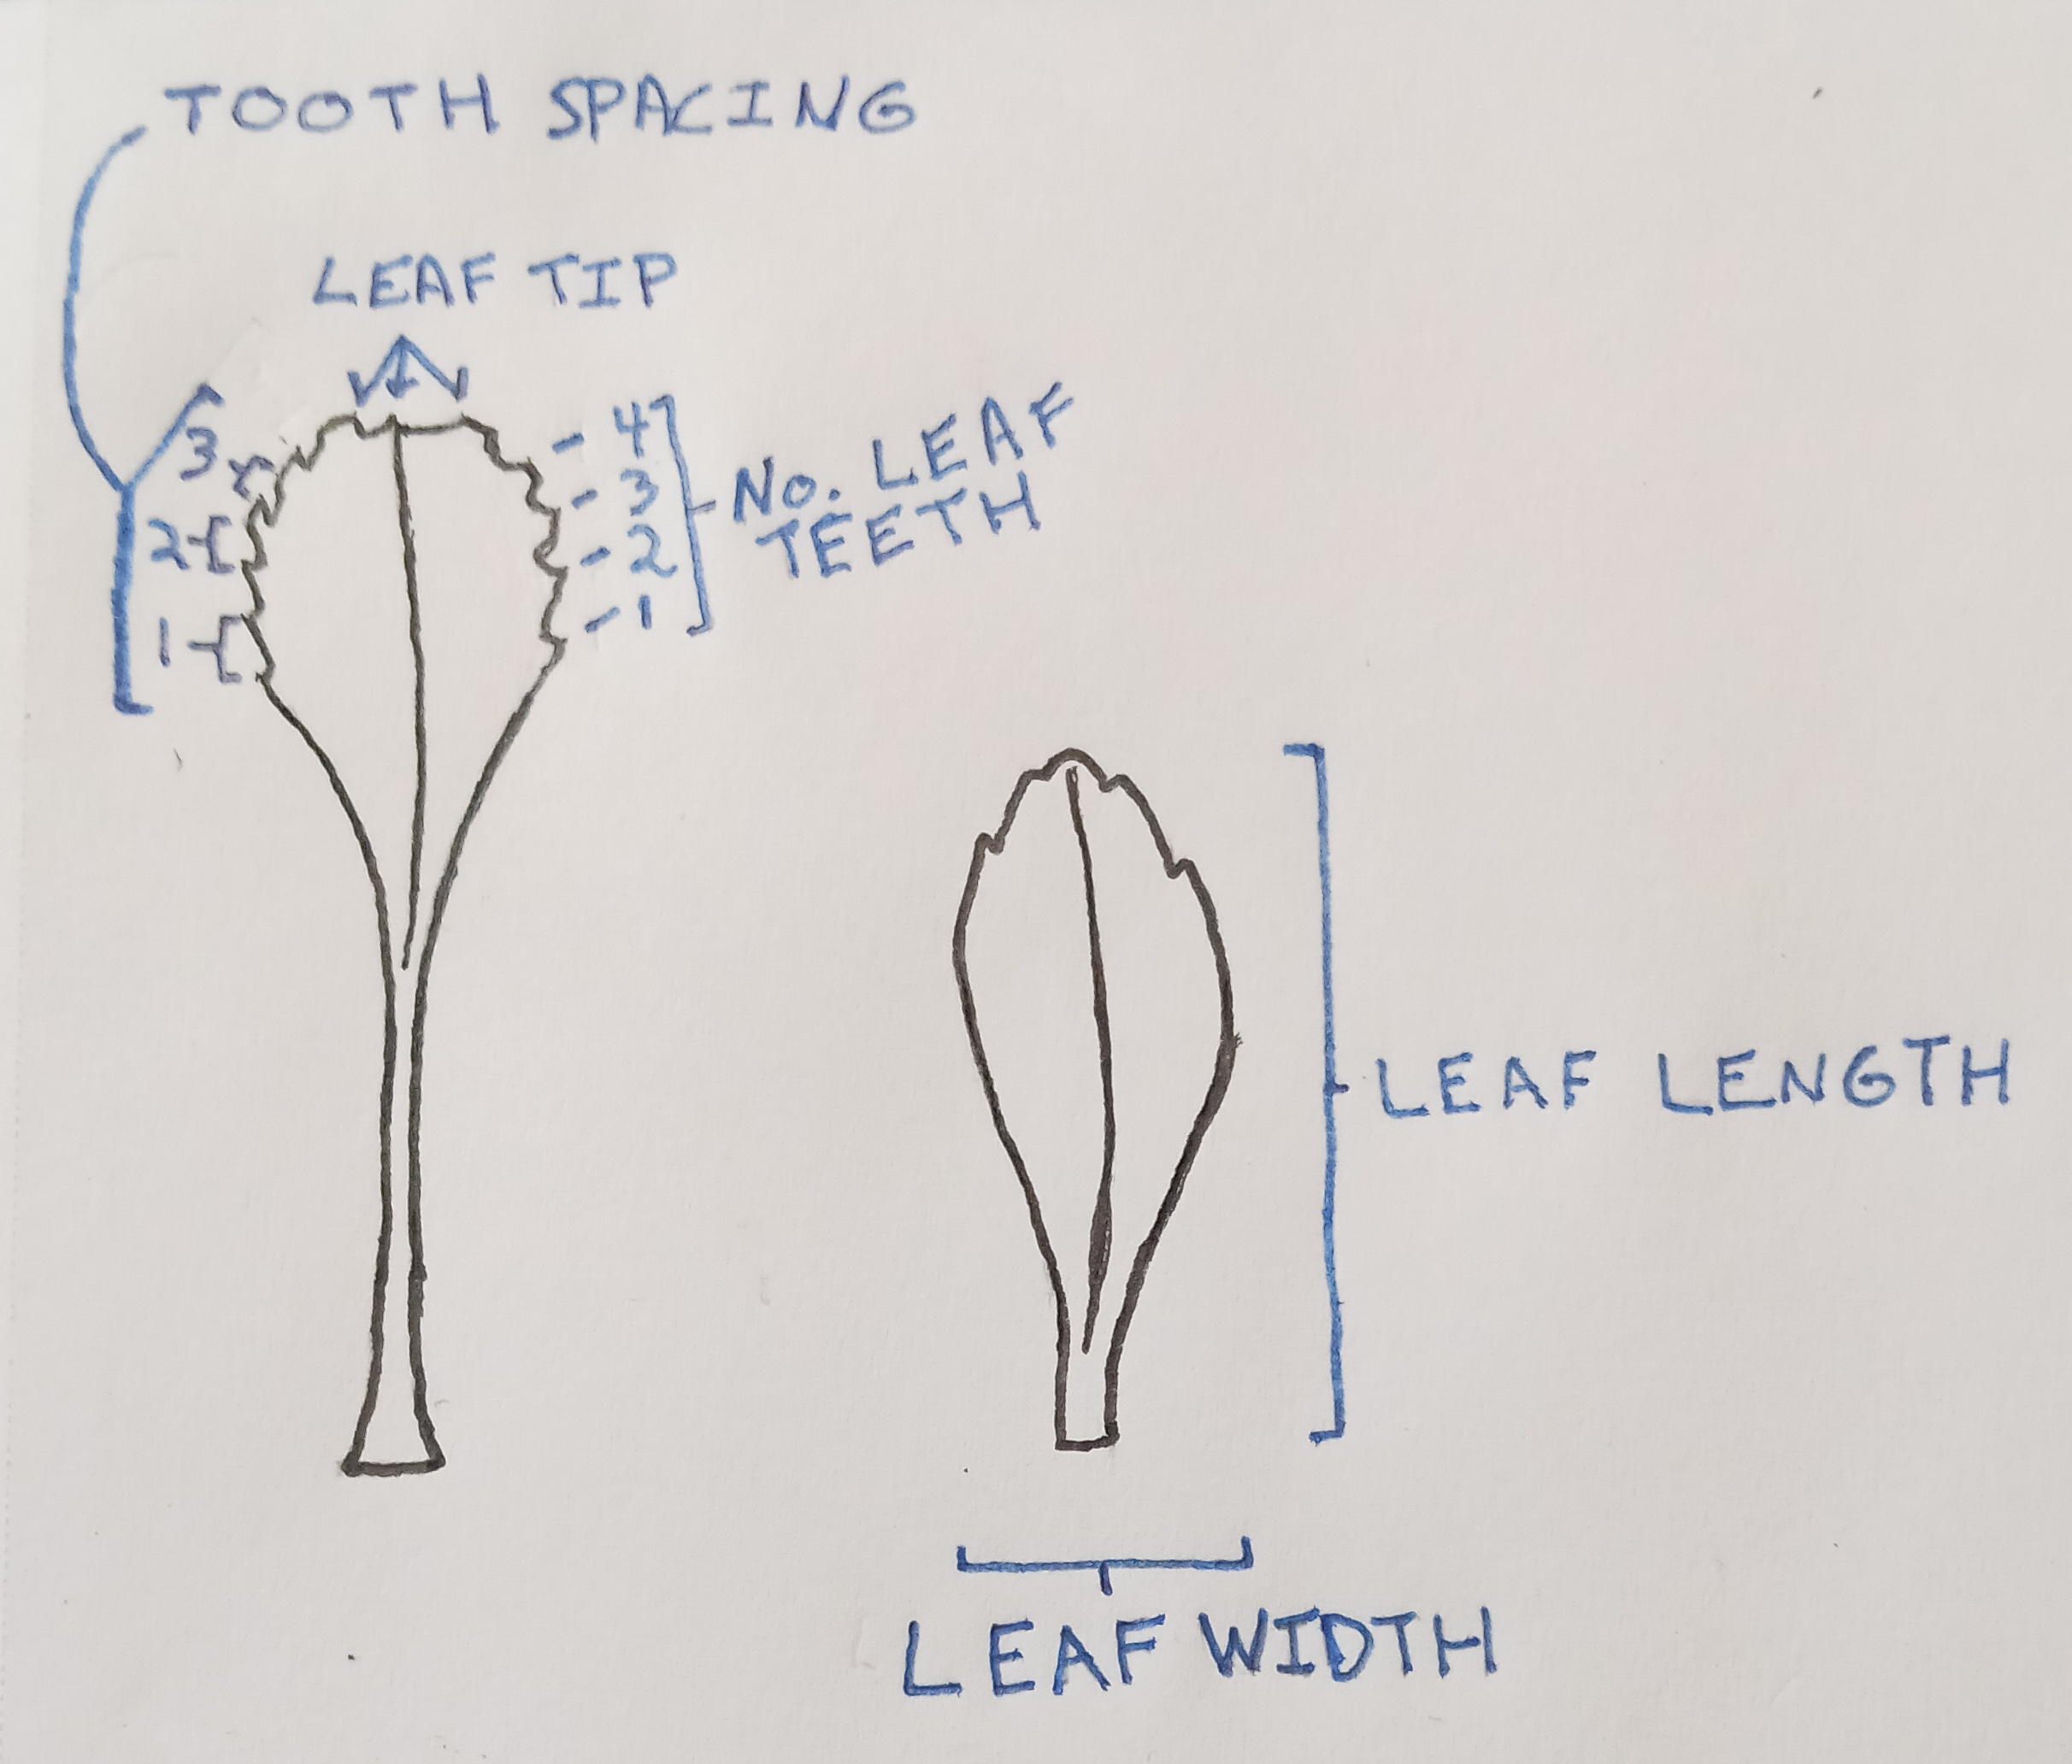 TOOTH SPACING
LEAF TIP
3
2
1
- 4
- 3
- 2
- 1
No. LEAF
TEETH
LEAF LENGTH
LEAF WIDTH